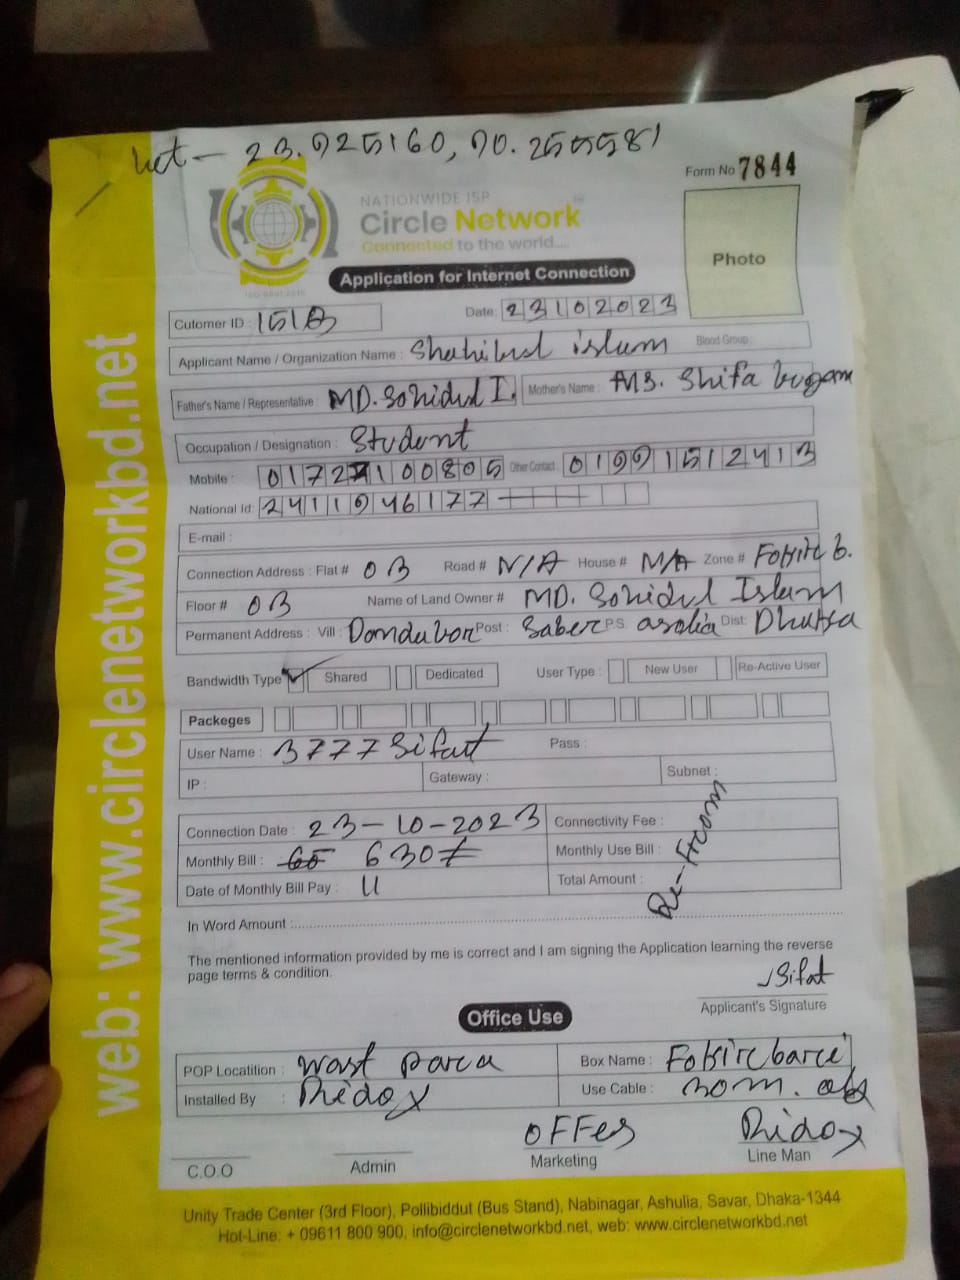 23.925160, 90.255581
Form No 7844
NATIONWIDE ISP
Circle Network
Connected to the world....
Photo
Application for Internet Connection
Cutomer ID : 1513 Date: 23102023
Applicant Name / Organization Name : Shahibul islam Blood Group:
Father's Name / Representative : MD. Sohidul I. Mother's Name : MS. Shifa begam
Occupation / Designation : Student
Mobile : 01727100805 Other Contact 01991512413
National Id: 2411946177
E-mail :
Connection Address : Flat # 03 Road # N/A House # N/A Zone # Fokirc b.
Floor # 03 Name of Land Owner # MD. Sohidul Islam
Permanent Address : Vill : Dondabor Post : Saber P.S. asolia Dist: Dhaka
Bandwidth Type Shared Dedicated User Type : New User Re-Active User
Packeges
User Name : 3777Sifat Pass :
IP : Gateway : Subnet :
Connection Date : 23-10-2023 Connectivity Fee :
Monthly Bill : 630/= Monthly Use Bill :
Date of Monthly Bill Pay : Total Amount :
In Word Amount :
The mentioned information provided by me is correct and I am signing the Application learning the reverse
page terms & condition.
Sifat
Applicant's Signature
Office Use
POP Locatition : Wast Parca Box Name : Fokirc barei
Installed By : Ridoy Use Cable : 30m.
OFFes Ridoy
C.O.O Admin Marketing Line Man
Unity Trade Center (3rd Floor), Pollibiddut (Bus Stand), Nabinagar, Ashulia, Savar, Dhaka-1344
Hot-Line: + 09611 800 900, info@circlenetworkbd.net, web: www.circlenetworkbd.net
web: www.circlenetworkbd.net